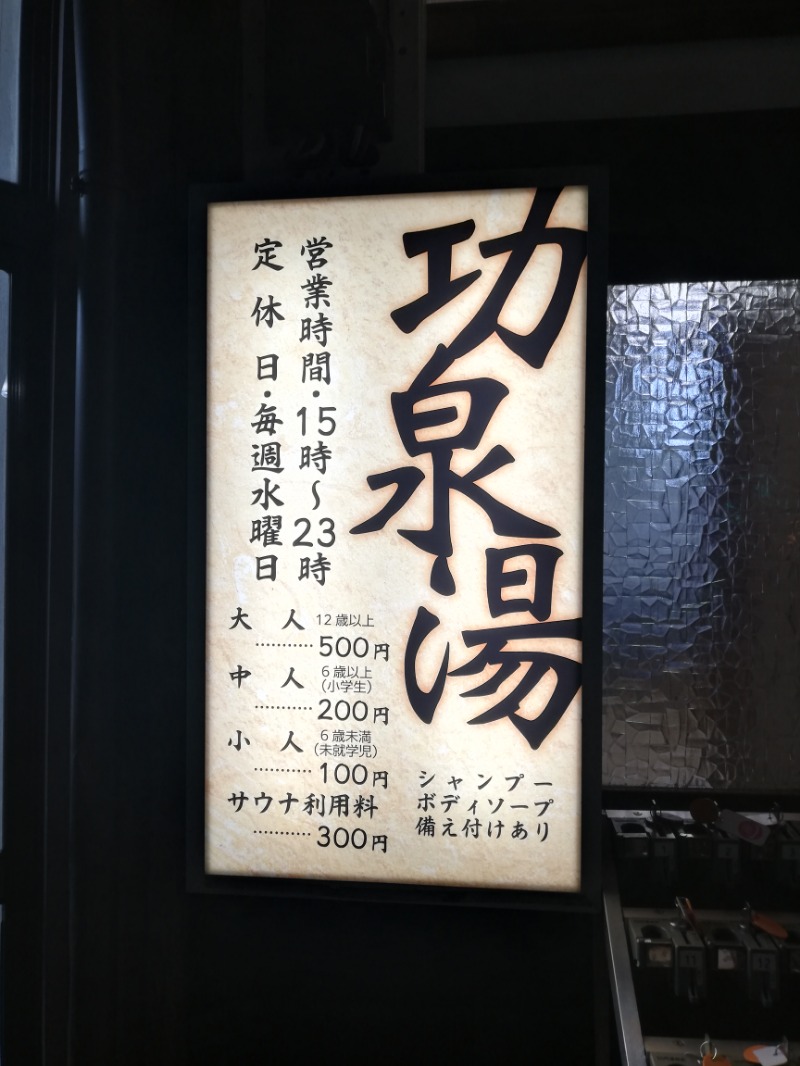 功泉湯
営業時間・15時〜23時
定休日・毎週水曜日
大人 12歳以上
…………500円
中人 6歳以上
(小学生)
…………200円
小人 6歳未満
(未就学児)
…………100円
サウナ利用料
…………300円
シャンプー
ボディソープ
備え付けあり